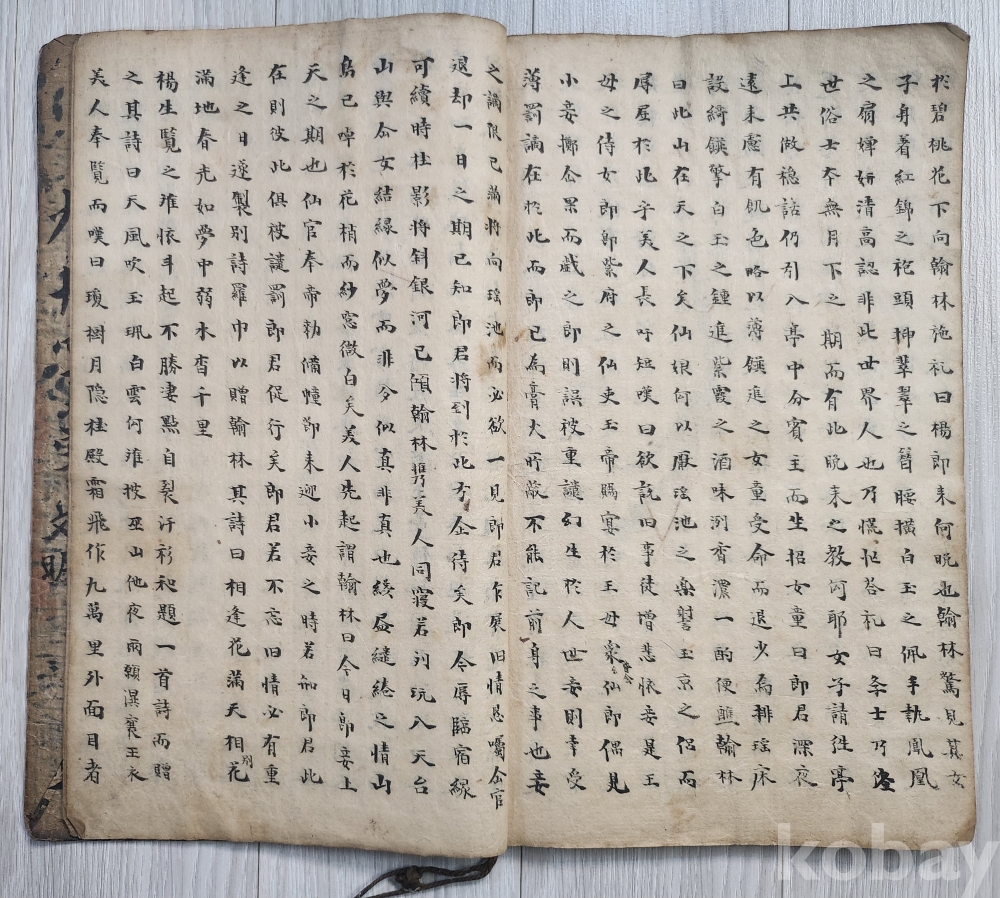 於碧桃花下向翰林施礼曰楊郎来何晩也翰林驚見其女
子身着紅錦之袍頭揷翠翠之簪腰橫白玉之佩手執鳳凰
之扇嬋姸淸高認非此世界人也乃慌忙答礼曰
世俗士本無月下之期而有此晩来之教何耶女子請徃亭
上共做穩話仍引入亭中分賓主而坐招女童曰郎君深夜
遠来慮有飢色略以薄饌進之女童受命而退少爲排瑤床
設綺饌擎白玉之鍾進紫霞之酒味洌香濃一酌便醺翰林
曰此山在天之下矣仙娘何以厭瑤池之樂玉京之侶而
辱居於此乎美人長吁短嘆曰欲說旧事徒增悲懷妾是王
母之侍女郎卽紫府之仙吏玉帝賜宴於王母衆仙會郎偶見
小妾擲仙果而戱之郎則誤被重譴幻生於人世妾則幸受
薄罰謫在於此而郎已為膏火所蔽不能記前身之事也妾
之謫限已滿將向瑤池而必欲一見郎君乍展旧情懇囑仙官
退却一日之期已知郎君將到於此方企待矣郎今辱臨宿緣
可續時桂影將斜銀河已傾翰林携美人同寢若刘阮入天台
山與仙女結緣似夢而非夢似真非真也綾盡繾綣之情山
鳥已啅於花梢而紗窓微白矣美人先起謂翰林曰今日卽妾上
天之期也仙官奉帝勅備幢節来迎小妾之時若知郎君此
在則彼此俱被譴罰郎君促行矣郎君若不忘旧情必有重
逢之日遂製別詩羅巾以贈翰林其詩曰相逢花滿天相別花
滿地春光如夢中弱水杳千里
楊生覽之難懷斗起不勝凄黯自裂汗衫和題一首詩而贈
之其詩曰天風吹玉珮白雲何淮披巫山他夜雨願濕襄王衣
美人奉覽而嘆曰瓊樹月隐桂殿霜飛作九萬里外面目者
kobay